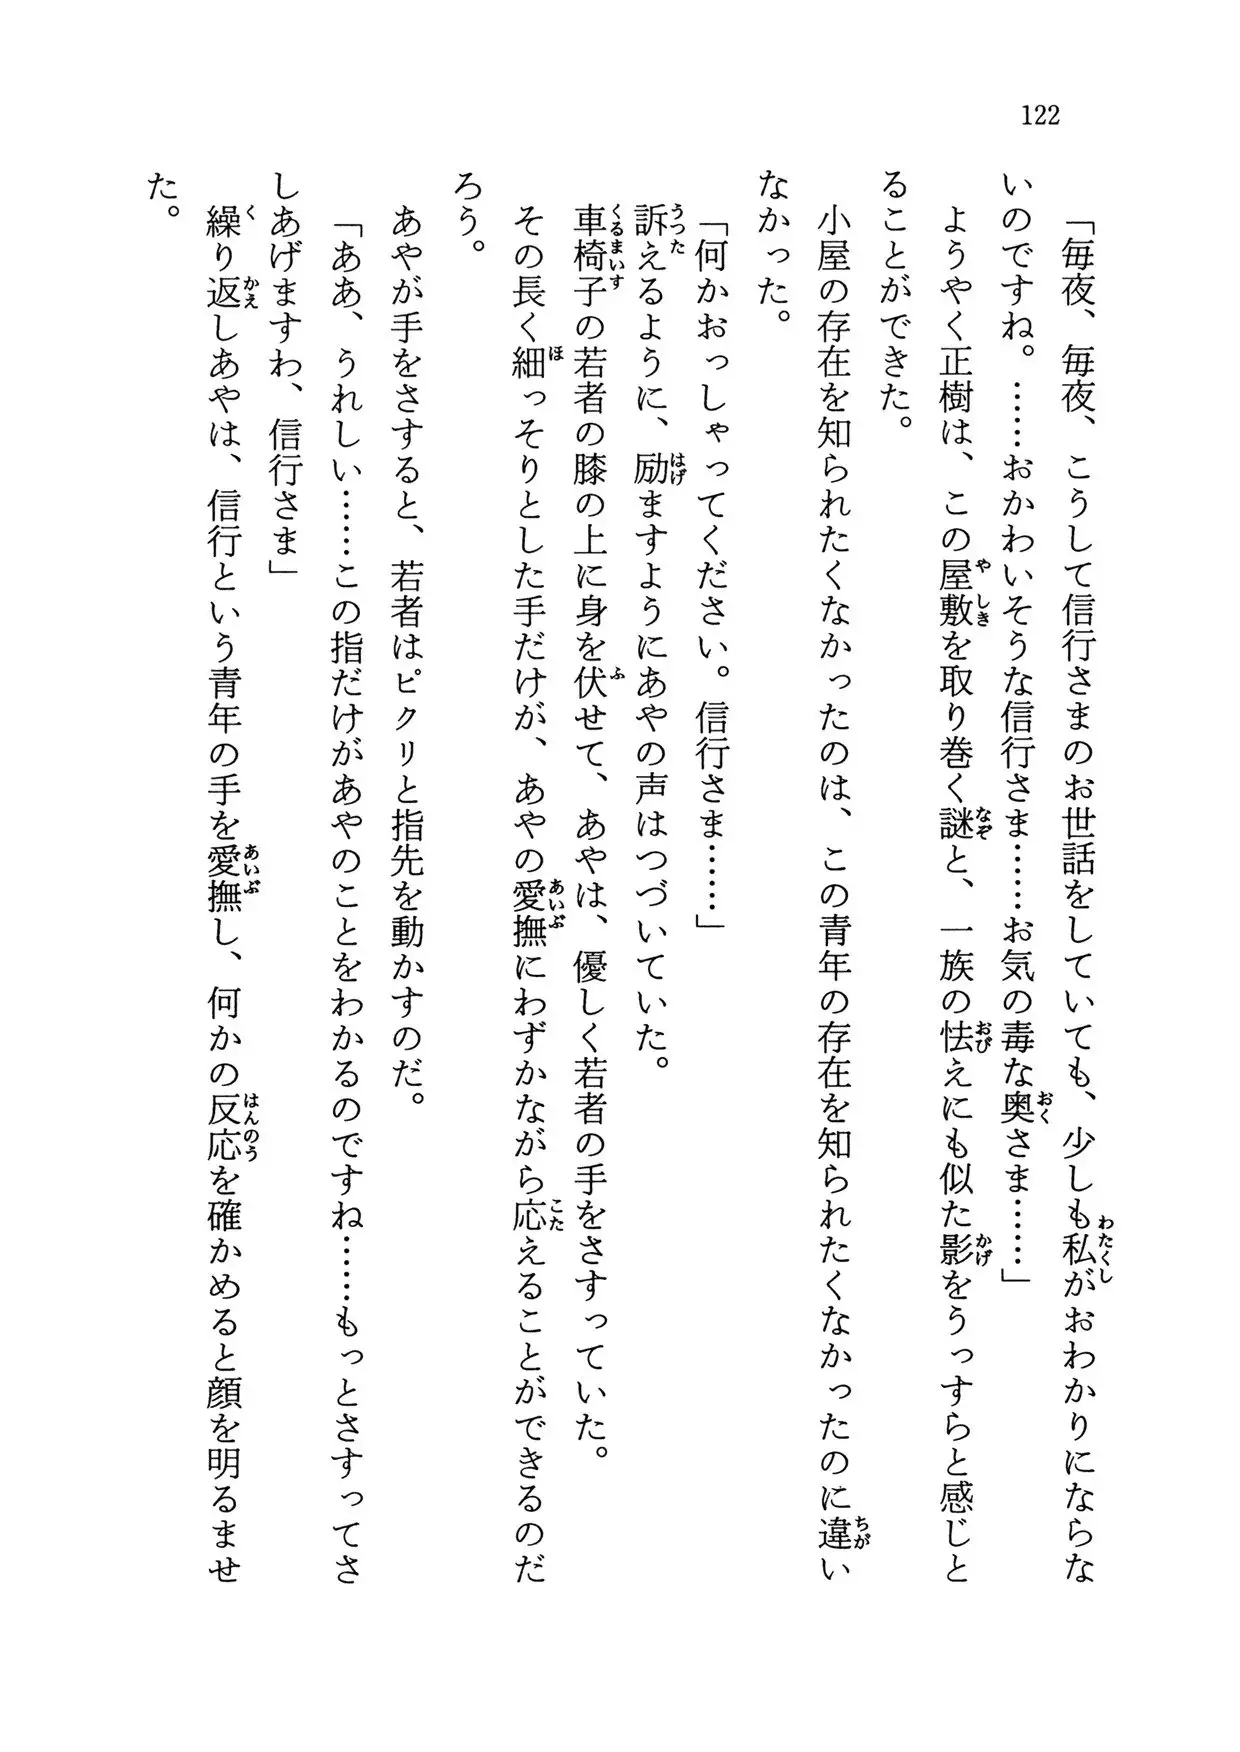 122
「毎夜、毎夜、こうして信行さまのお世話をしていても、少しも私がおわかりにならな
いのですね。……おかわいそうな信行さま……お気の毒な奥さま……」
ようやく正樹は、この屋敷を取り巻く謎と、一族の怯えにも似た影をうっすらと感じと
ることができた。
小屋の存在を知られたくなかったのは、この青年の存在を知られたくなかったのに違い
なかった。
「何かおっしゃってください。信行さま……」
訴えるように、励ますようにあやの声はつづいていた。
車椅子の若者の膝の上に身を伏せて、あやは、優しく若者の手をさすっていた。
その長く細っそりとした手だけが、あやの愛撫にわずかながら応えることができるのだ
ろう。
あやが手をさすると、若者はピクリと指先を動かすのだ。
「ああ、うれしい……この指だけがあやのことをわかるのですね……もっとさすってさ
しあげますわ、信行さま」
繰り返しあやは、信行という青年の手を愛撫し、何かの反応を確かめると顔を明るませ
た。